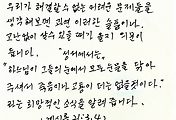 우리가 해결할 수 없는 어려운 문제들을
생각해보면 과연 이러한 슬픔이나
고난없이 살수 있을 때가 올지 의문이
듭니다. "성서에서는
"하느님이 그들의 눈에서 모든 눈물을 닦아
주셔서 죽음이나 고통이 더는 없을것이다."
라는 희망적인 소식을 알려 줍니다.
(계시록 21:3,4)